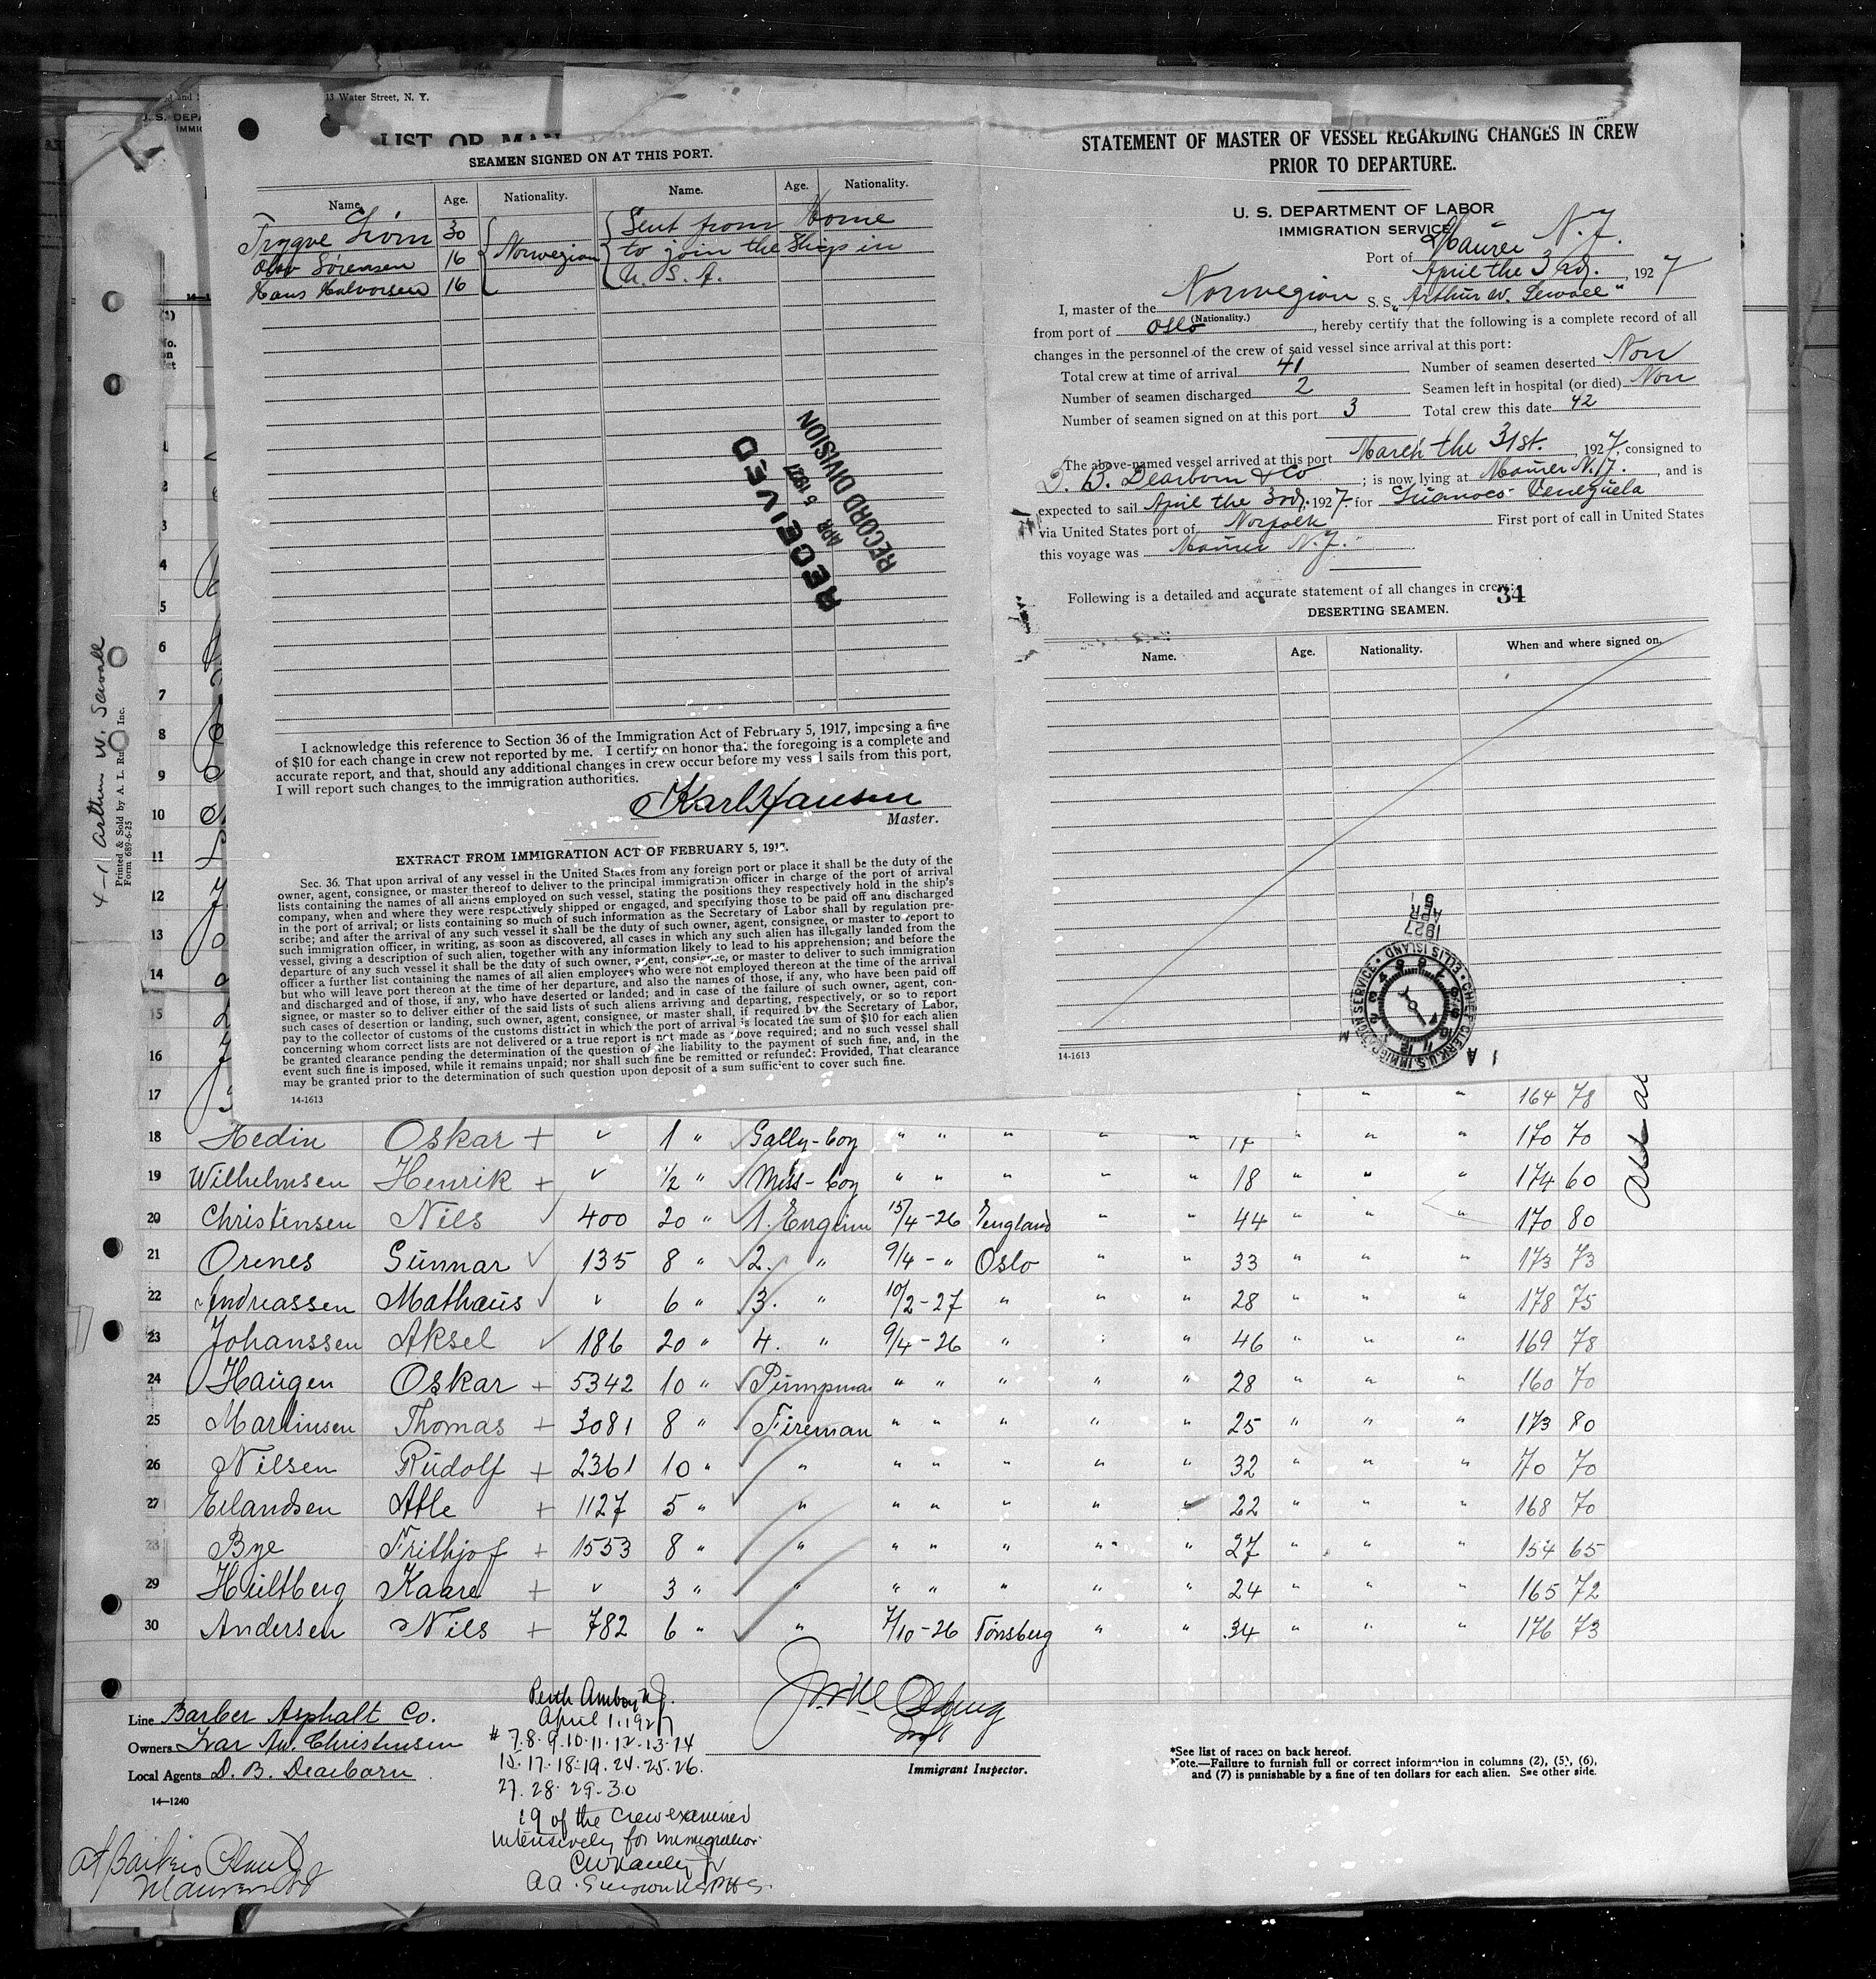 13 Water Street, N. Y.
U. S. DEPA
IMMIG
LIST OR MAN
SEAMEN SIGNED ON AT THIS PORT.
Name. Age. Nationality. Name. Age. Nationality.
Trygve 30 Norwegian Sent from Home
Olav Sörensen 16 to join the Ship in
Hans Halvorsen 16 U. S. A.
RECEIVED
APR 5 1927
RECORD DIVISION
I acknowledge this reference to Section 36 of the Immigration Act of February 5, 1917, imposing a fine
of $10 for each change in crew not reported by me. I certify on honor that the foregoing is a complete and
accurate report, and that, should any additional changes in crew occur before my vess l sails from this port,
I will report such changes to the immigration authorities.
Karl Hansen
Master.
EXTRACT FROM IMMIGRATION ACT OF FEBRUARY 5, 1917.
Sec. 36. That upon arrival of any vessel in the United States from any foreign port or place it shall be the duty of the
owner, agent, consignee, or master thereof to deliver to the principal immigration officer in charge of the port of arrival
lists containing the names of all aliens employed on such vessel, stating the positions they respectively hold in the ship's
company, when and where they were respectively shipped or engaged, and specifying those to be paid off and discharged
in the port of arrival; or lists containing so much of such information as the Secretary of Labor shall by regulation pre-
scribe; and after the arrival of any such vessel it shall be the duty of such owner, agent, consignee, or master to report to
such immigration officer, in writing, as soon as discovered, all cases in which any such alien has illegally landed from the
vessel, giving a description of such alien, together with any information likely to lead to his apprehension; and before the
departure of any such vessel it shall be the duty of such owner, agent, consignee, or master to deliver to such immigration
officer a further list containing the names of all alien employees who were not employed thereon at the time of the arrival
but who will leave port thereon at the time of her departure, and also the names of those, if any, who have been paid off
and discharged and of those, if any, who have deserted or landed; and in case of the failure of such owner, agent, con-
signee, or master so to deliver either of the said lists of such aliens arriving and departing, respectively, or so to report
such cases of desertion or landing, such owner, agent, consignee, or master shall, if required by the Secretary of Labor,
pay to the collector of customs of the customs district in which the port of arrival is located the sum of $10 for each alien
concerning whom correct lists are not delivered or a true report is not made as above required; and no such vessel shall
be granted clearance pending the determination of the question of the liability to the payment of such fine, and, in the
event such fine is imposed, while it remains unpaid; nor shall such fine be remitted or refunded: Provided, That clearance
may be granted prior to the determination of such question upon deposit of a sum sufficient to cover such fine.
14-1613
STATEMENT OF MASTER OF VESSEL REGARDING CHANGES IN CREW
PRIOR TO DEPARTURE.
U. S. DEPARTMENT OF LABOR
IMMIGRATION SERVICE
Port of Maurer N.J.
April the 3rd., 1927
I, master of the Norwegian S. S. "Arthur W. Sewall"
(Nationality.)
from port of Oslo, hereby certify that the following is a complete record of all
changes in the personnel of the crew of said vessel since arrival at this port:
Total crew at time of arrival 41 Number of seamen deserted Non
Number of seamen discharged 2 Seamen left in hospital (or died) Non
Number of seamen signed on at this port 3 Total crew this date 42
The above-named vessel arrived at this port March the 31st., 1927, consigned to
D. B. Dearborn & Co; is now lying at Maurer N.J., and is
expected to sail April the 3rd, 1927. for Guanoco Venezuela
via United States port of Norfolk First port of call in United States
this voyage was Maurer N.J.
Following is a detailed and accurate statement of all changes in crew:
34
DESERTING SEAMEN.
Name. Age. Nationality. When and where signed on.
1927 APR 5
CHIEF CLERK, U.S. IMMIGRATION SERVICE • ELLIS ISLAND •
14-1613
4-1 Arthur W. Sewall
Printed & Sold by A. L. Ru Inc.
Form 689-6-25
4
5
6
7
8
9
10
11
12
13
14
15
16
17 " " 164 78
18 Hedin Oskar + ✓ 1 " Gally-boy " " " " " 17 " " " 170 70
19 Wilhelmsen Henrik + ✓ 1/2 " Mess-boy " " " " " 18 " " " 174 60
20 Christensen Nils ✓ 400 20 " 1. Engin 15/4-26 England " " 44 " " " 170 80
21 Orenes Gunnar ✓ 135 8 " 2. " 9/4 - " Oslo " " 33 " " " 173 73
22 Andreassen Mathaus ✓ ✓ 6 " 3. " 10/2-27 " " " 28 " " " 178 75
23 Johanssen Aksel ✓ 186 20 " 4. " 9/4-26 " " " 46 " " " 169 78
24 Haugen Oskar + 5342 10 " Pumpman " " " " " 28 " " " 160 70
25 Martinsen Thomas + 3081 8 " Fireman " " " " " 25 " " " 173 80
26 Nilsen Rudolf + 2361 10 " " " " " " " 32 " " " 170 70
27 Erlandsen Atle + 1127 5 " " " " " " " 22 " " " 168 70
28 Bye Frithjof + 1553 8 " " " " " " " 27 " " " 154 65
29 Hultberg Kaare + ✓ 3 " " " " " " " 24 " " " 165 72
30 Andersen Nils + 782 6 " " 7/10-26 Tönsberg " " 34 " " " 176 73
Line Barber Asphalt Co.
Owners Ivar An. Christensen
Local Agents D. B. Dearborn
14-1240
Perth Amboy N.J.
April 1. 1927
# 7.8.9.10.11.12.13.14
15.17.18.19.24.25.26.
27.28.29.30
19 of the crew examined
intensively for immigration
Immigrant Inspector.
*See list of races on back hereof.
Note.—Failure to furnish full or correct information in columns (2), (5), (6),
and (7) is punishable by a fine of ten dollars for each alien. See other side.